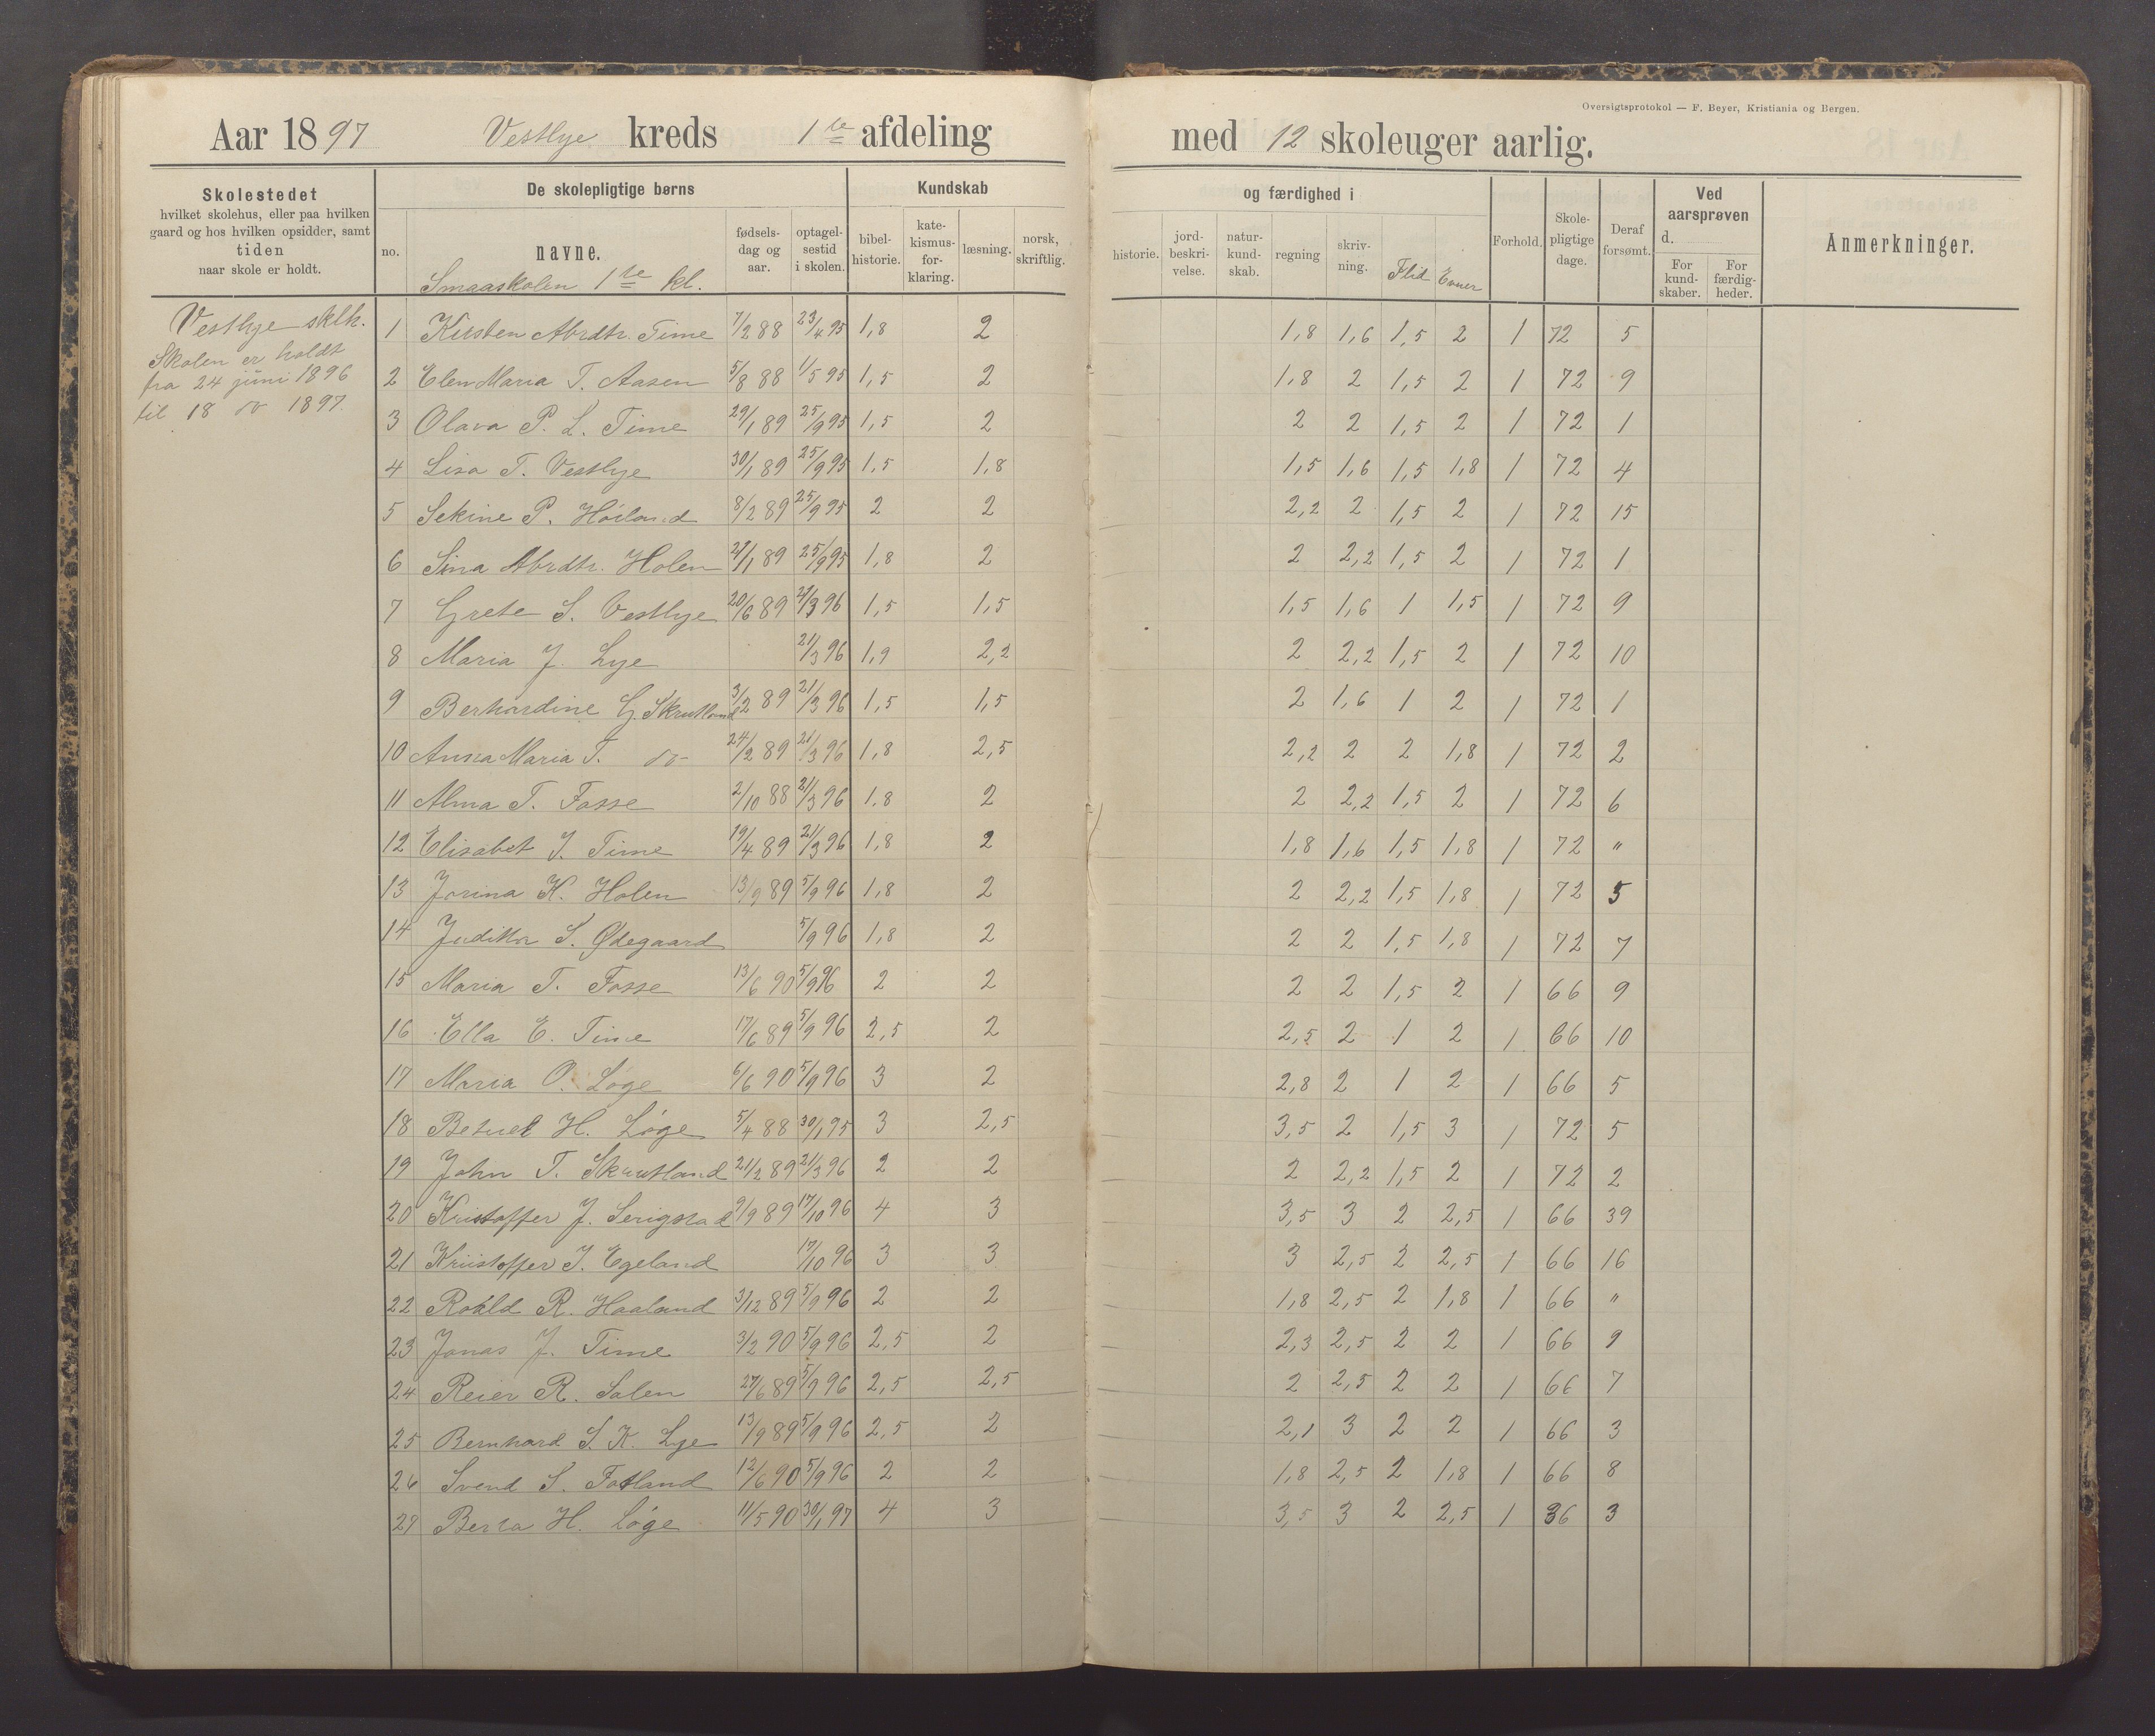 Oversigtsprotokol — F. Beyer, Kristiania og Bergen.
Aar 1897 Vestlye kreds 1te afdeling med 12 skoleuger aarlig.
Skolestedet hvilket skolehus, eller paa hvilken gaard og hos hvilken opsidder, samt tiden naar skole er holdt.
De skolepligtige børns
no. navne. fødselsdag og aar. optagelsestid i skolen.
Kundskab og færdighed i
bibelhistorie. katekismusforklaring. læsning. norsk, skriftlig. historie. jordbeskrivelse. naturkundskab. regning skrivning. Flid Evner
Forhold. Skolepligtige dage. Deraf forsømt.
Ved aarsprøven d.
For kundskaber. For færdigheder.
Anmerkninger.
Smaaskolen 1te kl.
Vestlye sklh.
Skolen er holdt
fra 24 juni 1896
til 18 do 1897.
1 Kirsten Abrdtr. Time 7/2 88 23/4 95 1,8 2 1,8 1,6 1,5 2 1 72 5
2 Elen Maria T. Aasen 5/8 88 1/5 95 1,5 2 1,8 2 1,5 2 1 72 9
3 Olava P. L. Time 29/1 89 25/9 95 1,5 2 2 2 1,5 2 1 72 1
4 Lisa T. Vestlye 30/1 89 25/9 95 1,5 1,8 1,5 1,6 1,5 1,8 1 72 4
5 Sekine P. Høiland 8/2 89 25/9 95 2 2 2,2 2 1,5 2 1 72 15
6 Sina Abrdtr. Holen 27/1 89 25/9 95 1,8 2 2 2,2 1,5 2 1 72 1
7 Grete S. Vestlye 20/6 89 21/3 96 1,5 1,5 1,5 1,6 1 1,5 1 72 9
8 Maria J. Lye 21/3 96 1,9 2,2 2 2,2 1,5 2 1 72 10
9 Berhardine G. Skrutland 3/2 89 21/3 96 1,5 1,5 2 1,6 1 2 1 72 1
10 Anna Maria T. do 24/2 89 21/3 96 1,8 2,5 2,2 2 2 1,8 1 72 2
11 Alma T. Fosse 2/10 88 21/3 96 1,8 2 2 2,2 1,5 2 1 72 6
12 Elisabet J. Time 19/4 89 21/3 96 1,8 2 1,8 1,6 1,5 1,8 1 72 "
13 Jorina K. Holen 13/9 89 5/9 96 1,8 2 2 2,2 1,5 1,8 1 72 5
14 Juditha S. Ødegaard 5/9 96 1,8 2 2 2 1,5 1,8 1 72 7
15 Maria T. Fosse 13/6 90 5/9 96 2 2 2 2 1,5 2 1 66 9
16 Ella E. Time 17/6 89 5/9 96 2,5 2 2,5 2 1 2 1 66 10
17 Maria O. Løge 6/6 90 5/9 96 3 2 2,8 2 1 2 1 66 5
18 Betuel H. Løge 5/4 88 30/1 95 3 2,5 3,5 2 1,5 3 1 72 5
19 John T. Skrutland 21/2 89 21/3 96 2 2 2 2,2 1,5 2 1 72 2
20 Kristoffer J. Serigstad 9/9 89 17/10 96 4 3 3,5 3 2 2,5 1 66 39
21 Kristoffer J. Egeland 17/10 96 3 3 3 2,5 2 2,5 1 66 16
22 Roald R. Haaland 3/12 89 5/9 96 2 2 1,8 2,5 2 1,8 1 66 "
23 Jonas J. Time 3/2 90 5/9 96 2,5 2 2,3 2,5 2 2 1 66 9
24 Reier R. Salen 27/6 89 5/9 96 2,5 2,5 2 2,5 2 2 1 66 7
25 Bernhard S. K. Lye 13/9 89 5/9 96 2,5 2 2,1 3 2 2 1 66 3
26 Svend S. Fotland 12/6 90 5/9 96 2 2 1,8 2,5 2 1,8 1 66 8
27 Berta H. Løge 11/5 90 30/1 97 4 3 3,5 3 2 2,5 1 36 3